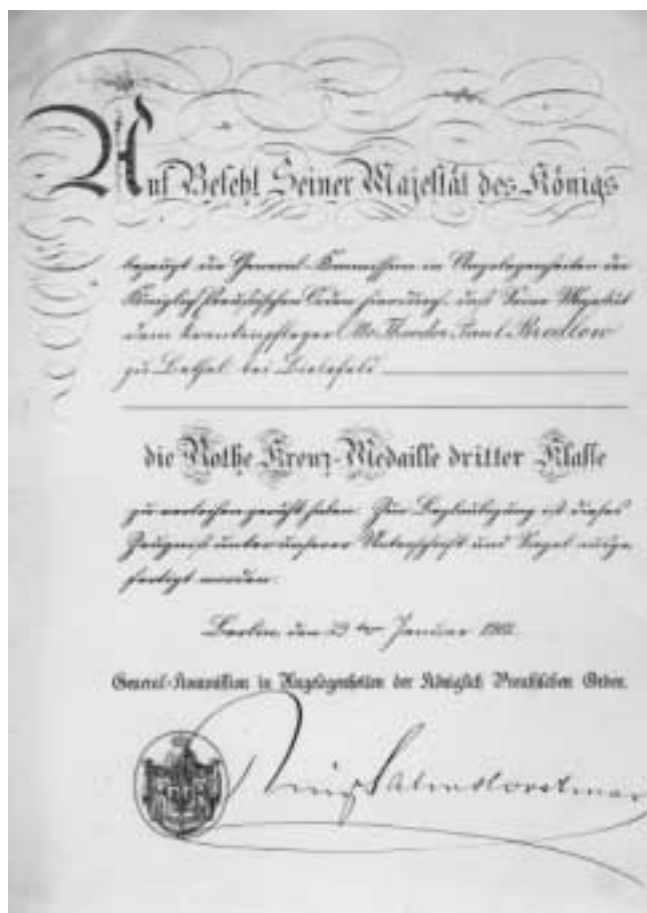 Auf Befehl Seiner Majestät des Königs
bezeugt die General-Kommission in Angelegenheiten der
Königlich Preußischen Orden hierdurch, daß Seine Majestät
dem Krankenpfleger Otto Theodor Paul Bredlow
zu Bethel bei Bielefeld
die Rothe Kreuz-Medaille dritter Klasse
zu verleihen geruht haben. Zur Beglaubigung ist dieses
Zeugniß unter unserer Unterschrift und Siegel ausge
fertigt worden.
Berlin, den ten Januar
General-Kommission in Angelegenheiten der Königlich Preußischen Orden.